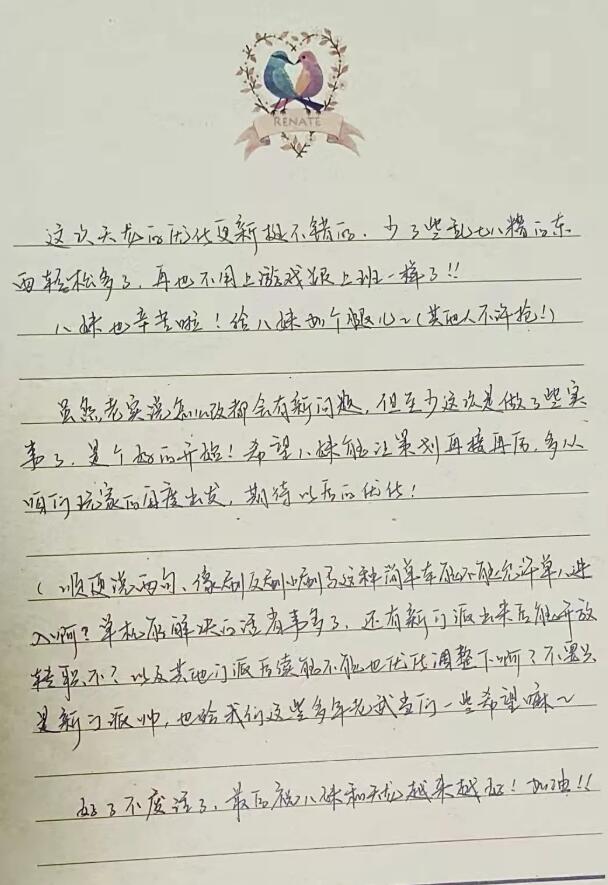 RENATE
这次天龙的优化更新挺不错的、少了些乱七八糟的东
西轻松多了，再也不用上游戏跟上班一样了!!
八妹也辛苦啦！给八妹比个暖心~(其他人不许抢!)
虽然老实说怎么改都会有新问题，但至少这次是做了些实
事了，是个好的开始！希望八妹能让策划再接再厉，多从
咱们玩家的角度出发，期待以后的优化！
(顺便说两句、像刷反刷小刷号这种简单本能不能允许单人进
入啊？单机能解决的话省事多了，还有新门派出来后能开放
转职不？以及其他门派后续能不能也优化调整下啊？不要只
是新门派帅，也给我们这些多年老武当们一些希望嘛~
好了不废话了，最后祝八妹和天龙越来越好！加油!!